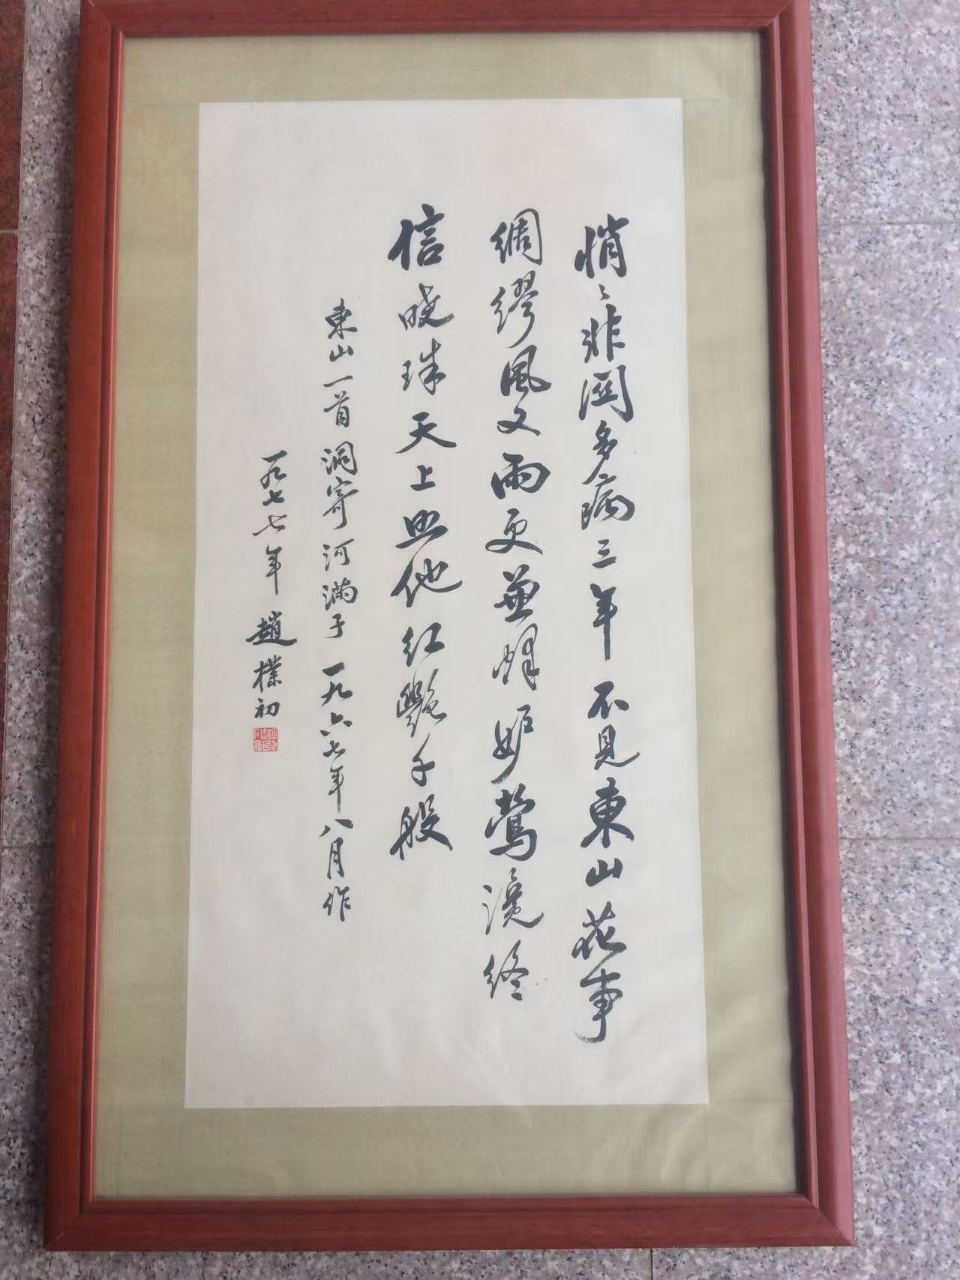 悄〻非關多病三年不見東山花事
綢繆風又雨更兼蜂妒鶯讒終
信曉珠天上照他红艷千般
東山一首調寄河满子一九六七年八月作
一九七七年趙樸初